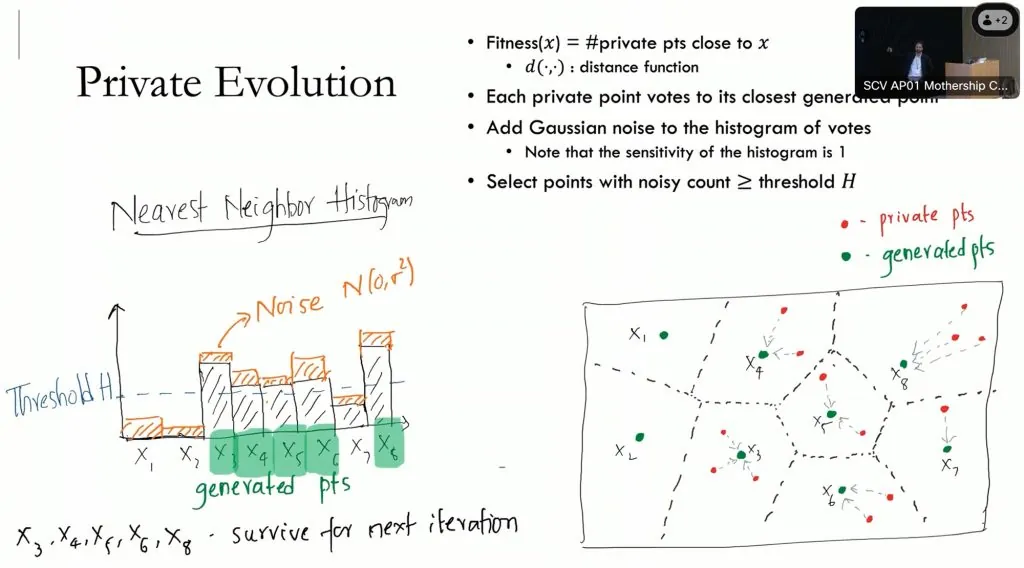 Private Evolution
• Fitness(x) = #private pts close to x
• d(·,·) : distance function
• Each private point votes to its closest generated point
• Add Gaussian noise to the histogram of votes
• Note that the sensitivity of the histogram is 1
• Select points with noisy count ≥ threshold H
+2
SCV AP01 Mothership C...
Nearest Neighbor Histogram
Noise N(0,σ²)
Threshold H
X₁ X₂ X₃ X₄ X₅ X₆ X₇ X₈
generated pts
X₃, X₄, X₅, X₆, X₈ - survive for next iteration
- private pts
- generated pts
X₁
X₄
X₈
X₅
X₂
X₃
X₇
X₆